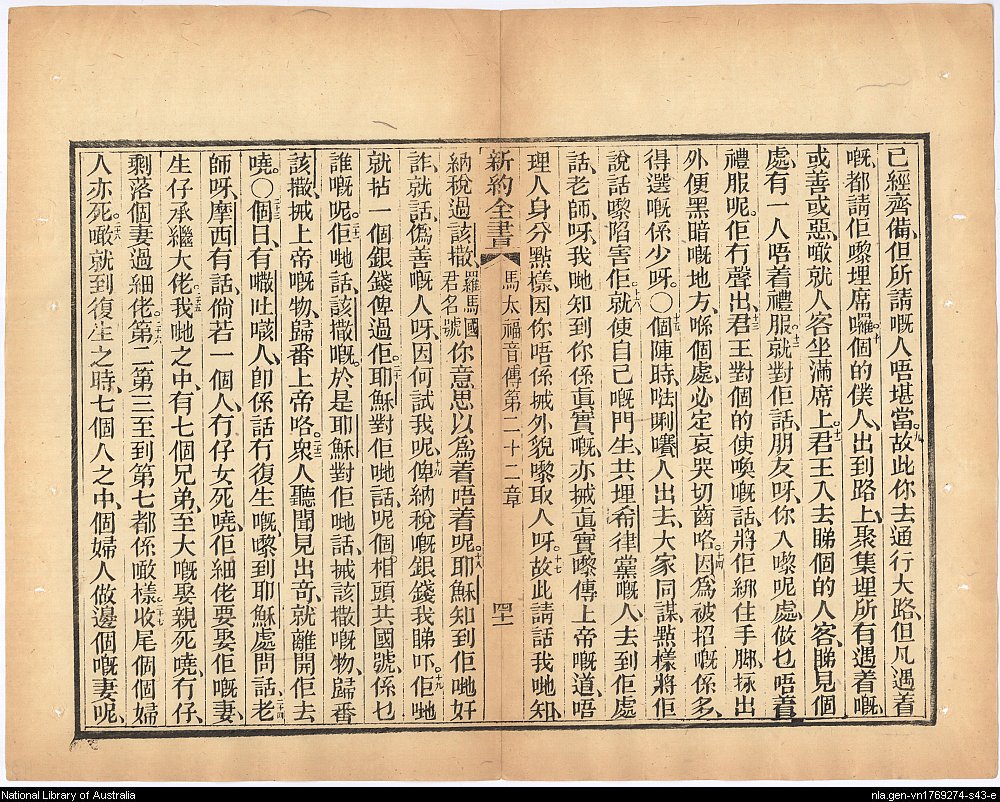 已經齊備、但所請嘅人唔堪當。故此你去通行大路、但凡遇着
嘅、都請佢嚟埋席囉。個的僕人、出到路上、聚集埋所有遇着嘅、
或善或惡、噉就人客坐滿席上。君王入去睇個的人客、睇見個
處、有一人唔着禮服、就對佢話、朋友呀、你入嚟呢處、做乜唔着
禮服呢。佢冇聲出、君王對個的使喚嘅話、將佢綁住手脚、掞出
外便黑暗嘅地方、喺個處、必定哀哭切齒咯。因爲被招嘅係多、
得選嘅係少呀。〇個陣時、𠵽唎㘔人出去、大家同謀、點樣將佢
說話嚟陷害佢、就使自己嘅門生、共埋希律黨嘅人、去到佢處
話、老師呀、我哋知到你係眞實嘅、亦搣眞實嚟傳上帝嘅道、唔
理人身分點樣、因你唔係搣外貌嚟取人呀。故此請話我哋知、
新約全書 馬太福音傳第二十二章 四十一
納稅過該撒、羅馬國君名號你意思以爲着唔着呢。耶穌知到佢哋奸
詐、就話、僞善嘅人呀、因何試我呢、俾納稅嘅銀錢我睇吓。佢哋
就拈一個銀錢俾過佢。耶穌對佢哋話、呢個相頭共國號、係乜
誰嘅呢。佢哋話、該撒嘅。於是耶穌對佢哋話、搣該撒嘅物、歸番
該撒、搣上帝嘅物、歸番上帝咯。衆人聽聞見出奇、就離開佢去
嘵。〇個日、有㘉吐㖡人、卽係話冇復生嘅、嚟到耶穌處問話、老
師呀、摩西有話、倘若一個人、冇仔女死嘵、佢細佬要娶佢嘅妻、
生仔承繼大佬。我哋之中、有七個兄弟、至大嘅娶親死嘵、冇仔、
剩落個妻過細佬。第二第三至到第七都係噉樣。收尾個個婦
人亦死。噉就到復生之時、七個人之中、個婦人做邊個嘅妻呢、
National Library of Australia
nla.gen-vn1769274-s43-e